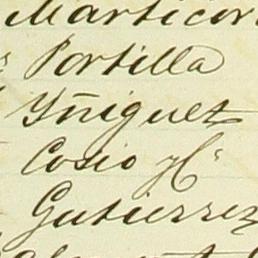 Marticor
Portilla
Yñiguez
Cosio y Cª
Gutierrez